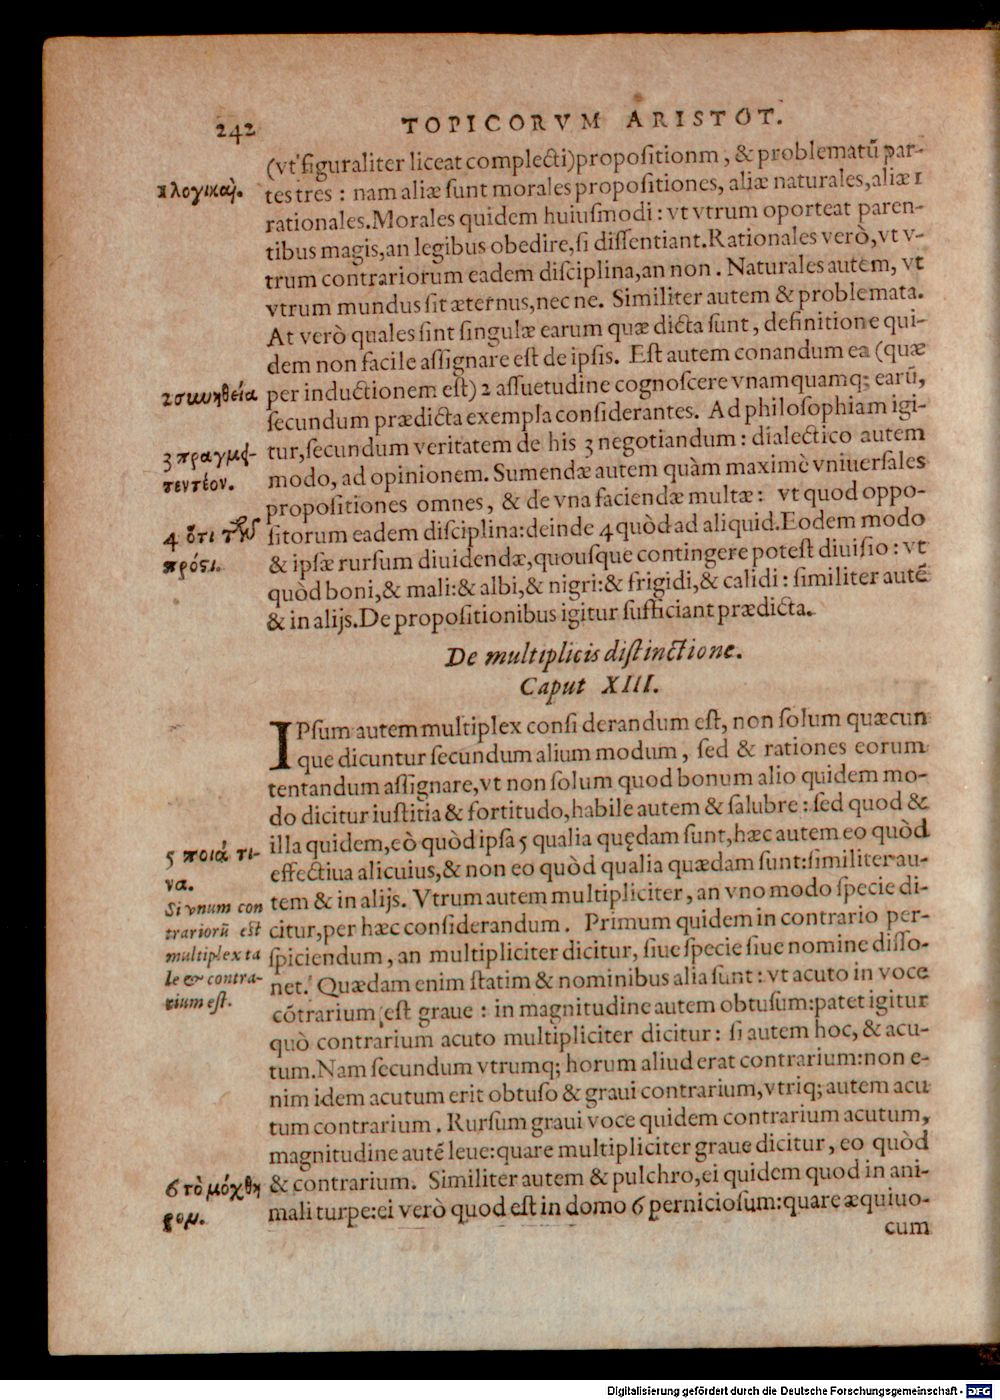 242
TOPICORVM ARISTOT.
(vt figuraliter liceat complecti)propositionm, & problematũ par-
tes tres : nam aliæ sunt morales propositiones, aliæ naturales, aliæ 1
rationales. Morales quidem huiusmodi : vt vtrum oporteat paren-
tibus magis, an legibus obedire, si dissentiant. Rationales verò, vt v-
trum contrariorum eadem disciplina, an non. Naturales autem, vt
vtrum mundus sit æternus, nec ne. Similiter autem & problemata.
At verò quales sint singulæ earum quæ dicta sunt, definitione qui-
dem non facile assignare est de ipsis. Est autem conandum ea (quæ
per inductionem est) 2 assuetudine cognoscere vnamquamq; earũ,
secundum prædicta exempla considerantes. Ad philosophiam igi-
tur, secundum veritatem de his 3 negotiandum : dialectico autem
modo, ad opinionem. Sumendæ autem quàm maximè vniuersales
propositiones omnes, & de vna faciendæ multæ : vt quod oppo-
sitorum eadem disciplina: deinde 4 quòd ad aliquid. Eodem modo
& ipsæ rursum diuidendæ, quousque contingere potest diuisio : vt
quòd boni, & mali: & albi, & nigri: & frigidi, & calidi : similiter autẽ
& in alijs. De propositionibus igitur sufficiant prædicta.
1 λογικαί.
2 συνηθεία
3 πραγμα-
τευτέον.
4 ὅτι τῶν
πρός τι.
De multiplicis distinctione.
Caput XIII.
IPsum autem multiplex consi derandum est, non solum quæcun
que dicuntur secundum alium modum, sed & rationes eorum
tentandum assignare, vt non solum quod bonum alio quidem mo-
do dicitur iustitia & fortitudo, habile autem & salubre : sed quod &
illa quidem, eò quòd ipsa 5 qualia quędam sunt, hæc autem eo quòd
effectiua alicuius, & non eo quòd qualia quædam sunt: similiter au-
tem & in alijs. Vtrum autem multipliciter, an vno modo specie di-
citur, per hæc considerandum. Primum quidem in contrario per-
spiciendum, an multipliciter dicitur, siue specie siue nomine disso-
net. Quædam enim statim & nominibus alia sunt : vt acuto in voce
cõtrarium est graue : in magnitudine autem obtusum: patet igitur
quò contrarium acuto multipliciter dicitur : si autem hoc, & acu-
tum. Nam secundum vtrumq; horum aliud erat contrarium: non e-
nim idem acutum erit obtuso & graui contrarium, vtriq; autem acu
tum contrarium. Rursum graui voce quidem contrarium acutum,
magnitudine autẽ leue: quare multipliciter graue dicitur, eo quòd
& contrarium. Similiter autem & pulchro, ei quidem quod in ani-
mali turpe: ei verò quod est in domo 6 perniciosum: quare æquiuo-
cum
5 ποιά τι-
να.
Si vnum con
trariorũ est
multiplex ta
le & contra-
rium est.
6 τὸ μόχθη
ρον.
Digitalisierung gefördert durch die Deutsche Forschungsgemeinschaft - DFG